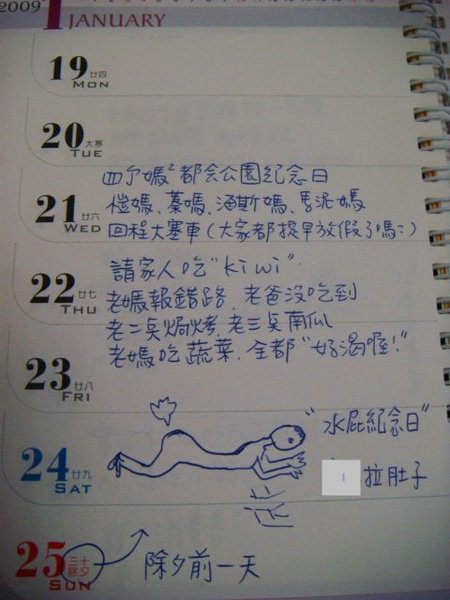 2009 1 JANUARY
19 廿四
MON
20 大寒
TUE
四个媽² 都会公園紀念日
21 廿六
WED
愷媽、蓁媽、涵斯媽、馬泥媽
回程大塞車(大家都提早放假了嗎?)
請家人吃"kiwi".
22 廿七
THU
老媽報錯路.老爸沒吃到
老二吳焗烤.老三吳南瓜
老媽吃蔬菜.全都"好渴喔!"
23 廿八
FRI
"水屁紀念日"
24 廿九
SAT
拉肚子
25 三十 除夕
SUN
除夕前一天